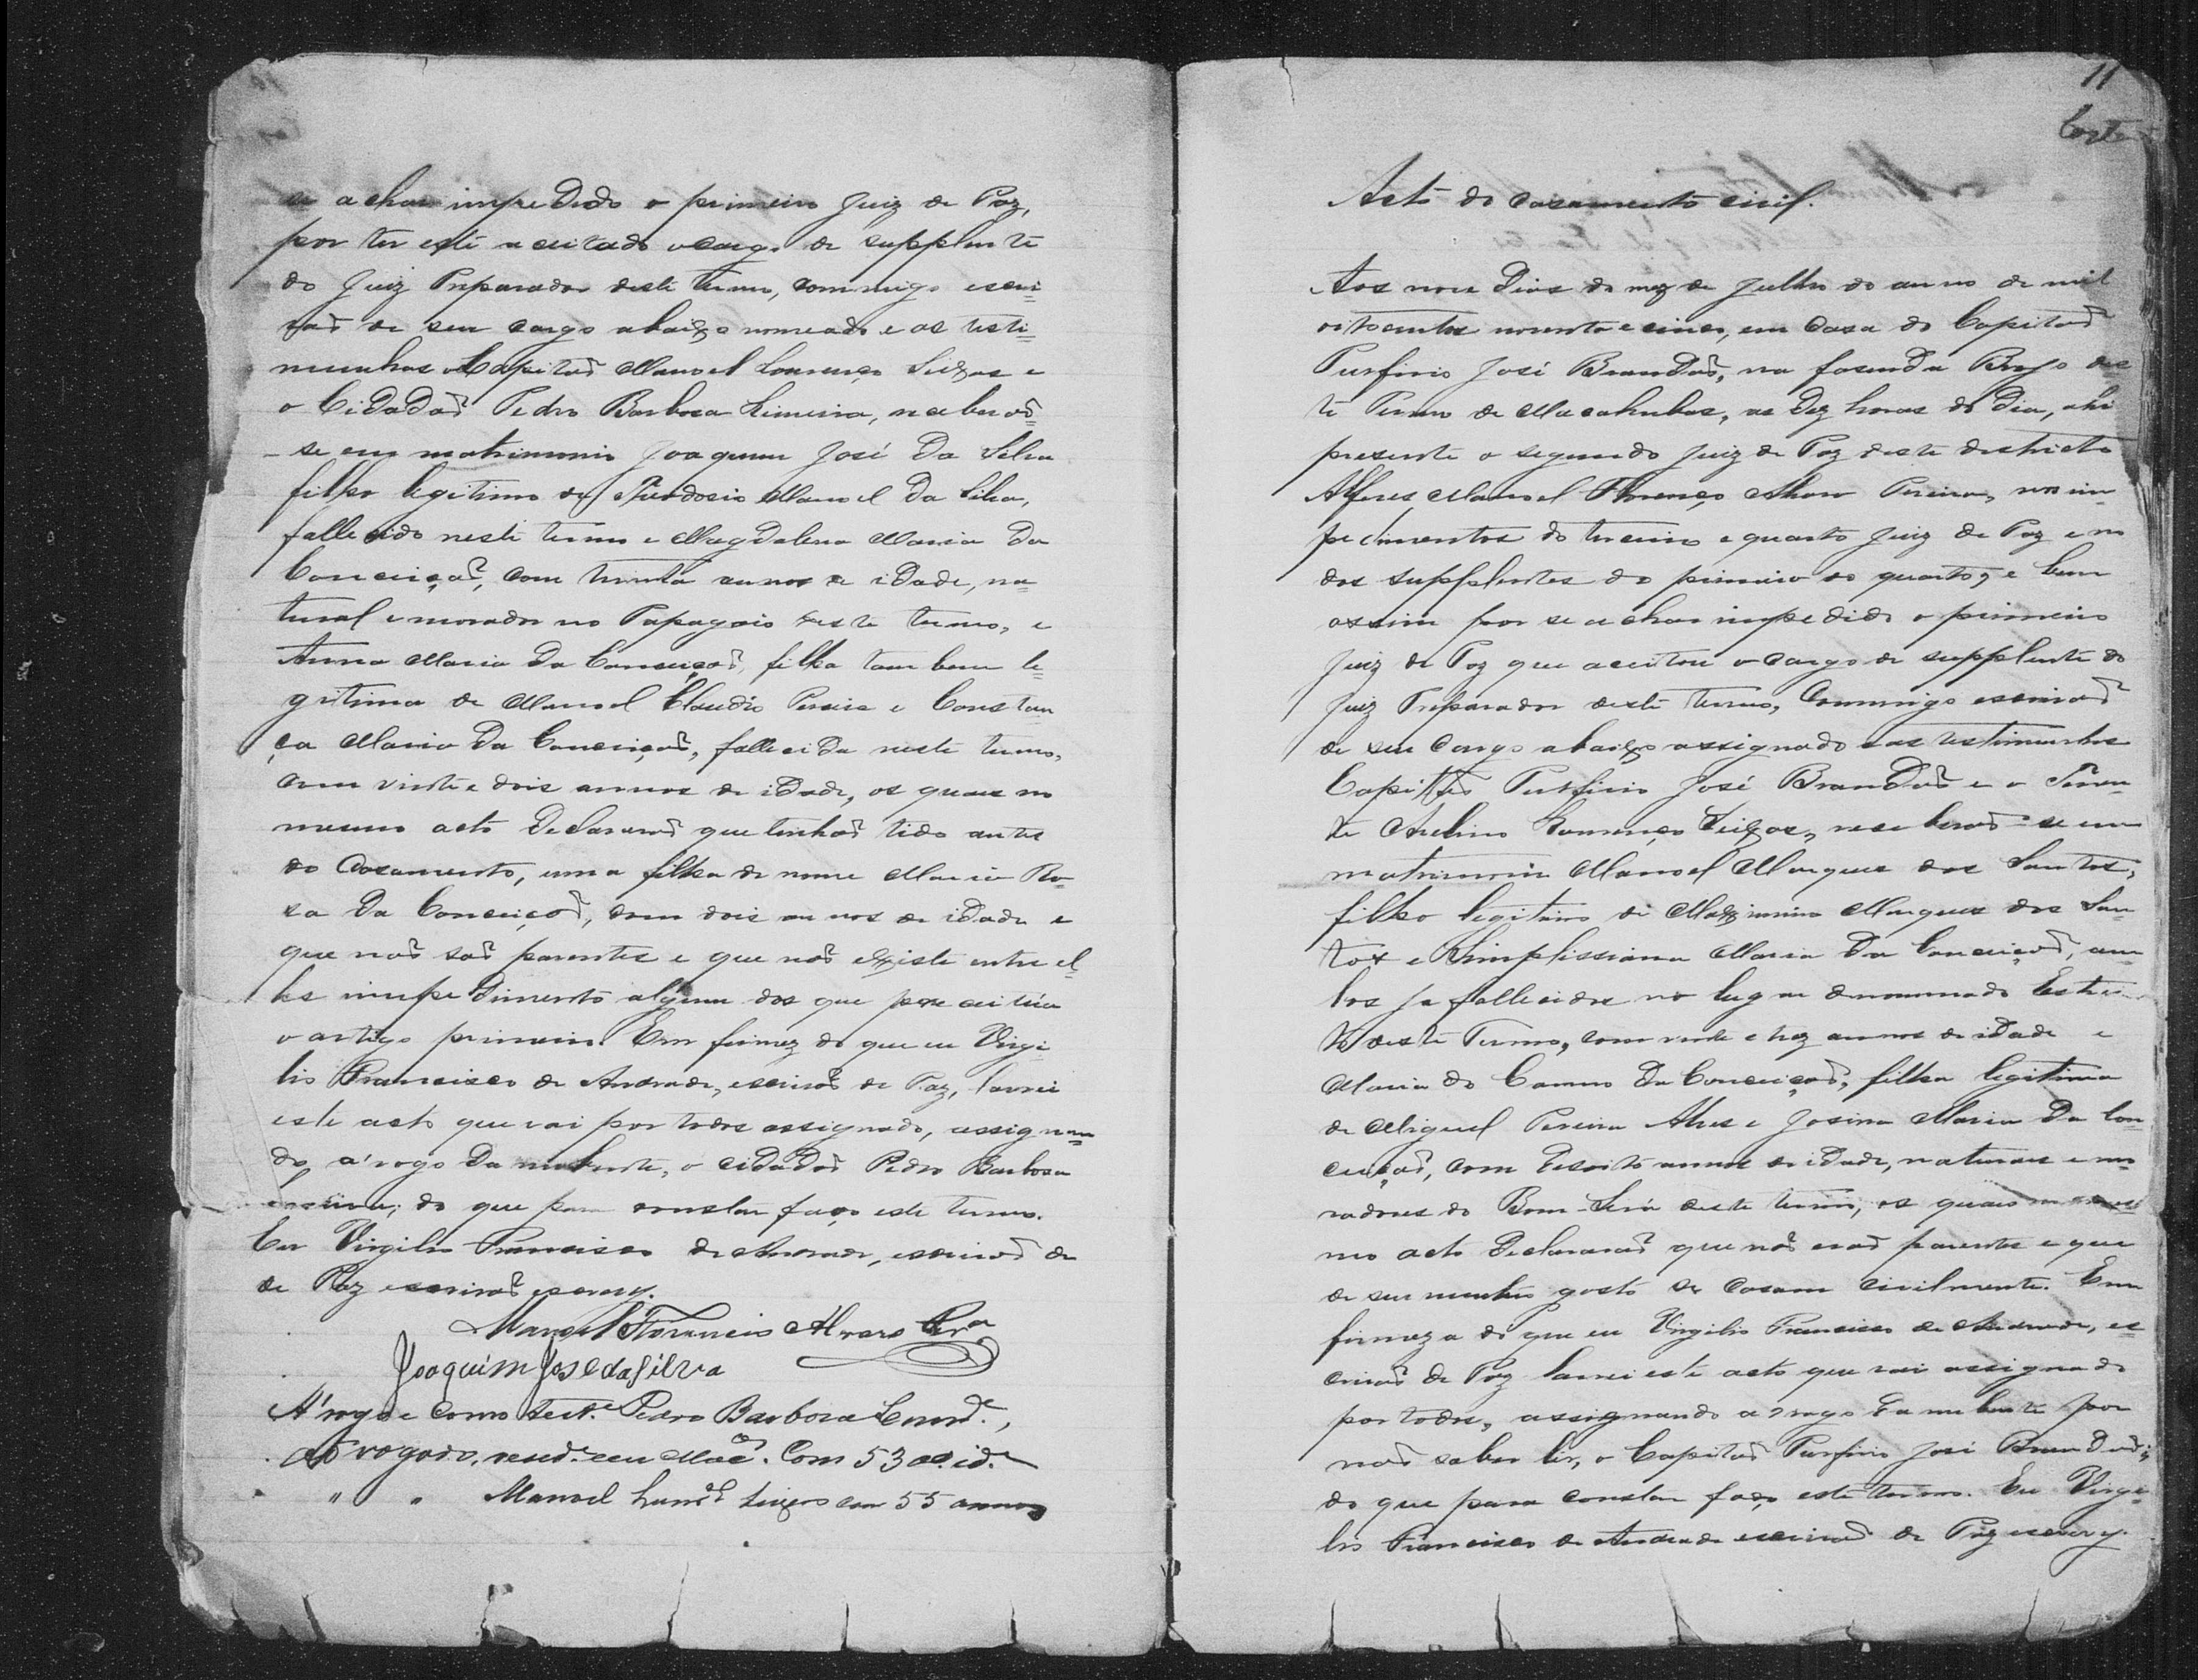 se achar impedido o primeiro Juiz de Paz,
por ter este aceitado o cargo de supplente
do Juiz Preparador deste termo, commigo escri=
vaõ de seu cargo abaixo nomeado e as teste=
munhas Capitaõ Manoel Lourenço Seixas e
o Cidadaõ Pedro Barbosa Limeira, receberaõ=
-se em matrimonio Joaquim José da Silva
filho legitimo de Theodosio Manoel da Silva,
fallecido neste termo e Magdalena Maria da
Conceiçaõ, com trinta annos de idade, na=
tural e morador no Papagaio deste termo, e
Anna Maria da Conceiçaõ, filha tambem le=
gitima de Manoel Claudio Pereira e Constan
ça Maria da Conceiçaõ, fallecida neste termo,
com vinte e dois annos de idade, os quaes no
mesmo acto declararaõ que tinhaõ tido antes
do Casamento, uma filha de nome Maria Ro=
sa da Conceiçaõ, com dois annos de idade e
que naõ saõ parentes e que naõ existe entre el=
les impedimento algum dos que preceitúa
o artigo primeiro. Em firmez do que eu Virgi
lio Francisco de Andrade, escrivaõ de Paz, lavrei
este acto que vai por todos assignado, assignan=
do á rogo da nubente, o cidadaõ Pedro Barbosa
Limeira; do que para constar faço este termo.
Eu Virgilio Francisco de Andrade, escrivaõ de
de Paz escrivaõ escrevy.
Manoel Florencio Alvares Per.ª
Joaquim Jose da Silva
A' rogo e como test.ª Pedro Barbosa
Com 53 a. id.e
" " Manoel Seixas com 55 annos
11
Acto do casamento civil.
Aos nove dias do mez de Julho do anno de mil
oitocentos noventa e cinco, em casa do Capitaõ
Purfirio José Brandaõ, na fasenda Brejo des
te Termo de Macahubas, as dez horas do dia, ahi
presente o segundo Juiz de Paz deste destricto
Alferes Manoel Florenço Alvares Pereira, nos im
pedimentos do terceiro e quarto Juiz de Paz e no
dos supplentes do primeiro ao quarto, e bem
assim por se achar impedido o primeiro
Juiz de Paz que aceitou o cargo de supplente do
Juiz Preparador deste termo, Commigo escrivaõ
de seu cargo abaixo assignado e as testimunhas
Capitaõ Purfirio José Brandaõ e o Tenen
te Avelino Lourenço Seixas, receberaõ-se em
matrimonio Manoel Marques dos Santos,
filho legitimo de Maximino Marques dos San
tos e Simplissiana Maria da Conceiçaõ, am
bos ja fallecidos no lugar denominado
deste Termo, com vinte e trez annos de idade e
Maria do Carmo da Conceiçaõ, filha legitima
de Miguel Pereira Alves e Josina Maria da Con
ceiçaõ, com desoito annos de idade, naturaes e mo
radores do Bom-Será deste termo, os quaes no mes
mo acto declararaõ que naõ eraõ parentes e que
de seu muito gosto se casam civilmente. Em
firmeza do que eu Virgilio Francisco de Andrade, es=
crivaõ de Paz lavrei este acto que vai assignado
por todos, assignando a rogo da nubente por
naõ saber ler, o Capitaõ Purfirio José Brandaõ;
do que para constar faço este termo. Eu Virgi=
lio Francisco de Andrade escrivaõ de Paz escrevy.